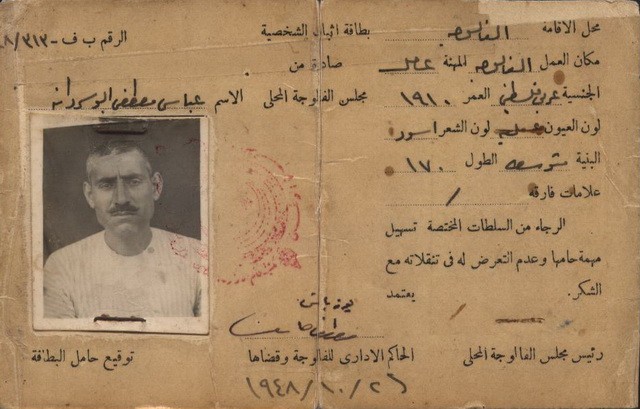 محل الاقامة الفالوجه
مكان العمل الفالوجه المهنة عامل
الجنسية عربي فلسطيني العمر ١٩١٠
لون العيون عسليه لون الشعر اسود
البنية متوسطه الطول ١٧٠
علامات فارقه /
الرجاء من السلطات المختصة تسهيل
مهمة حاملها وعدم التعرض له فى تنقلاته مع
الشكر. يعتمد
رئيس مجلس الفالوجة المحلى
بطاقة اثبات الشخصية
الرقم ب ف - ٨/٣١٣
صادرة من
مجلس الفالوجة المحلى
الاسم عباس مصطفى
يوزباشى
الحاكم الادارى للفالوجة وقضاها
توقيع حامل البطاقة
١٩٤٨/١٠/٢٦